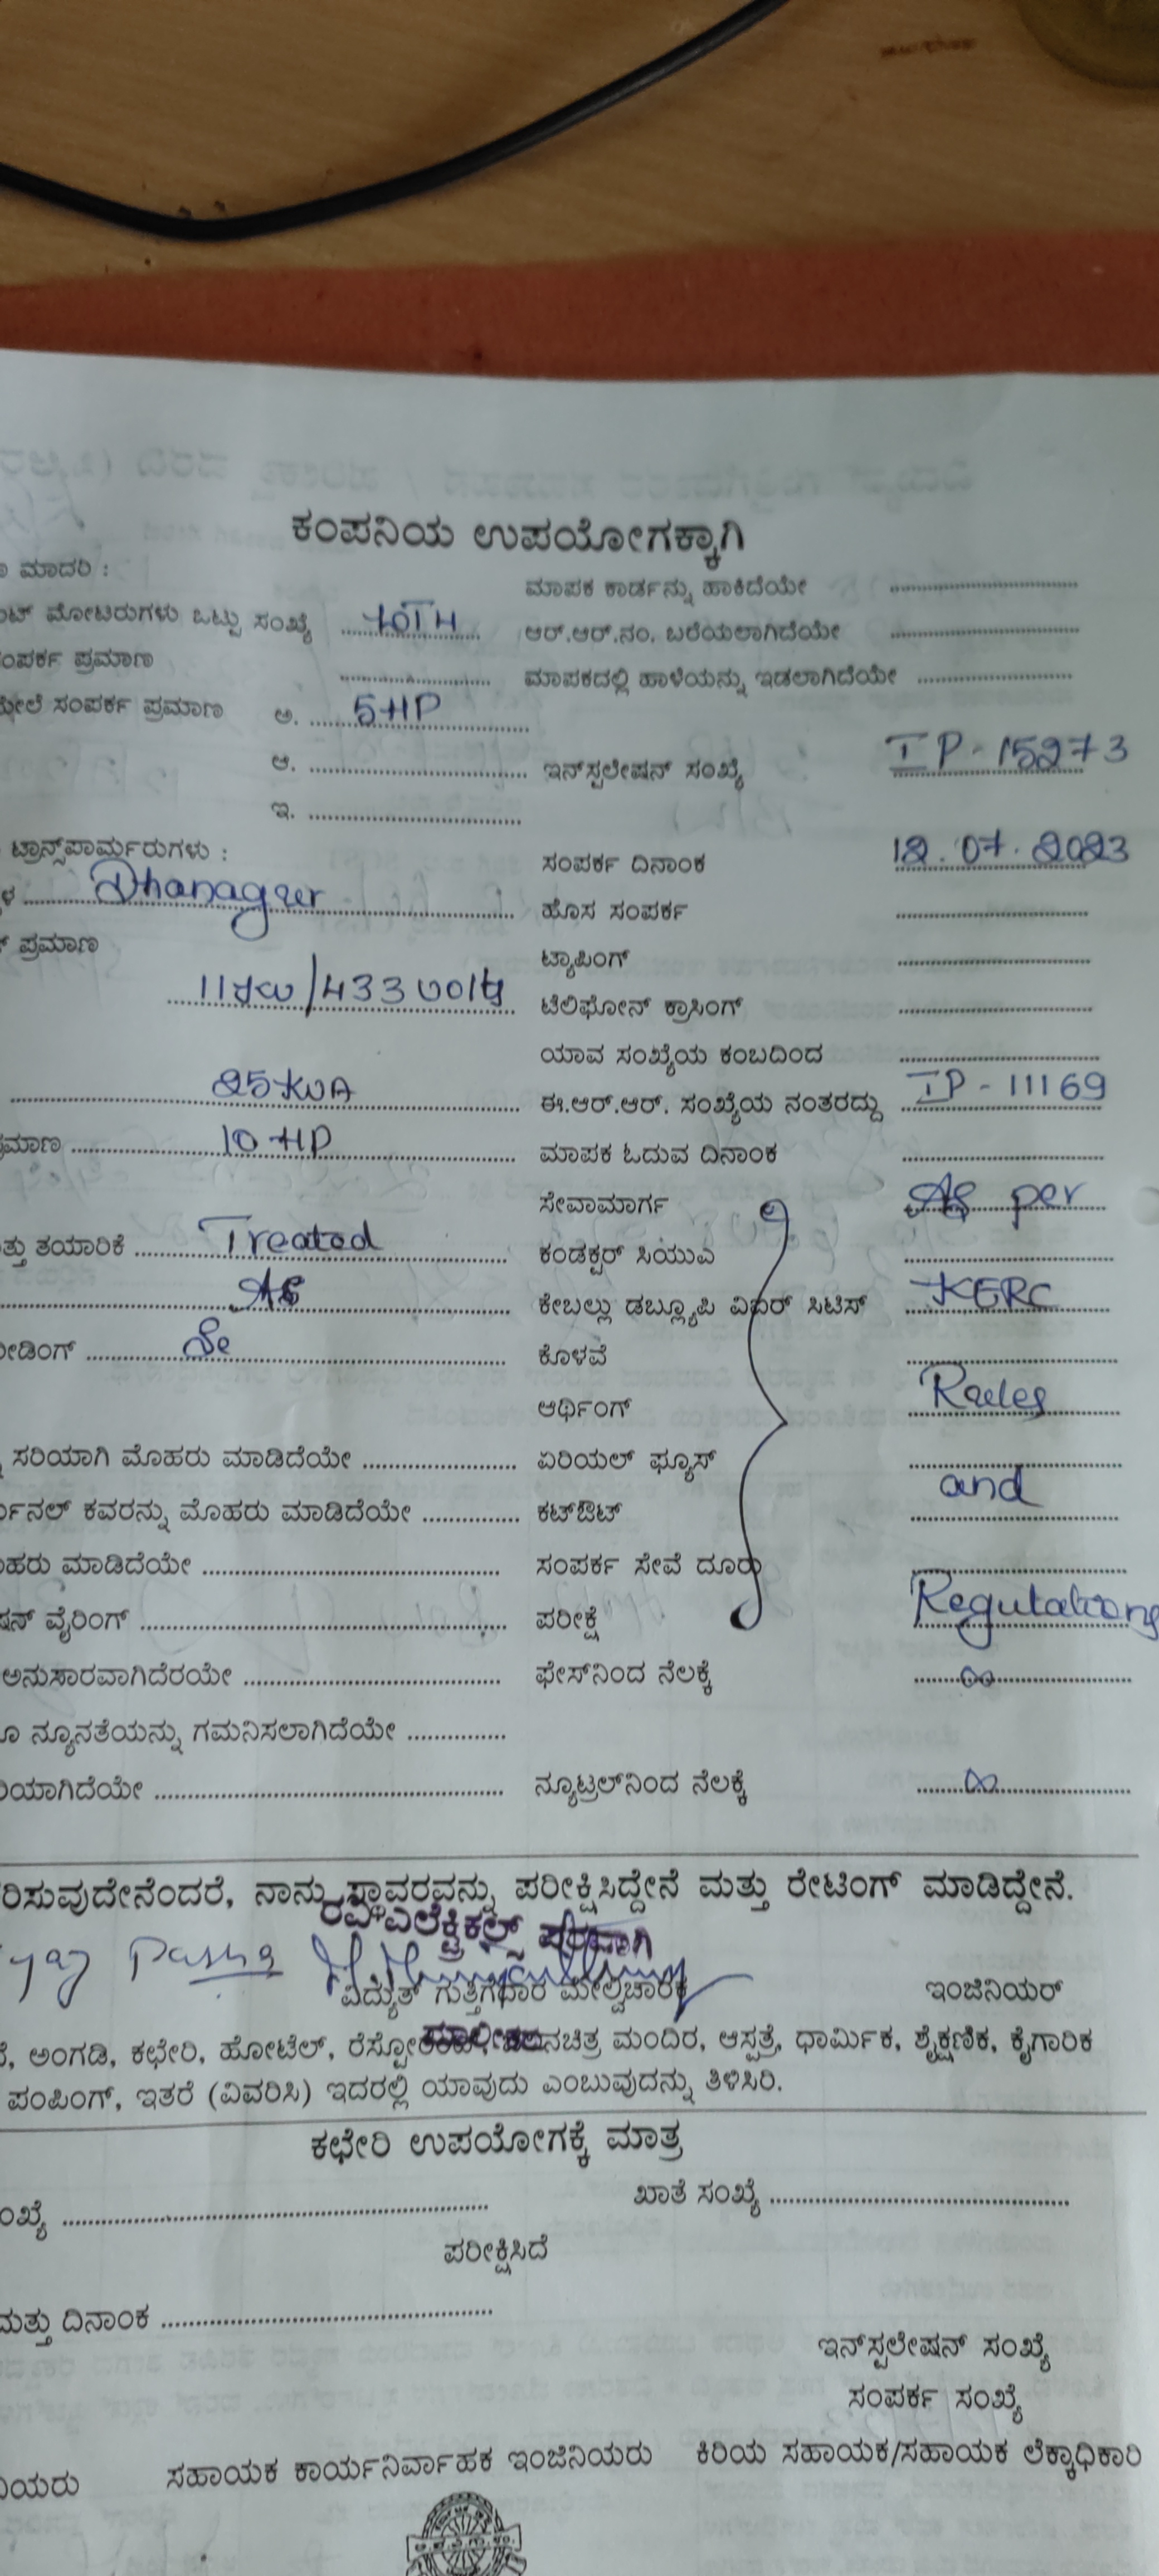 ಕಂಪನಿಯ ಉಪಯೋಗಕ್ಕಾಗಿ
ಮಾದರಿ :
ಮಾಪಕ ಕಾರ್ಡನ್ನು ಹಾಕಿದೆಯೇ ....................
ಮೋಟರುಗಳು ಒಟ್ಟು ಸಂಖ್ಯೆ
ಆರ್.ಆರ್.ನಂ. ಬರೆಯಲಾಗಿದೆಯೇ ....................
ಸಂಪರ್ಕ ಪ್ರಮಾಣ ....................
ಮಾಪಕದಲ್ಲಿ ಹಾಳೆಯನ್ನು ಇಡಲಾಗಿದೆಯೇ ....................
ಮೇಲೆ ಸಂಪರ್ಕ ಪ್ರಮಾಣ ಅ. 5HP
ಆ. .................... ಇನ್‌ಸ್ಪಲೇಷನ್ ಸಂಖ್ಯೆ IP-15273
ಇ. ....................
ಟ್ರಾನ್ಸ್‌ಪಾರ್ಮರುಗಳು :
ಸಂಪರ್ಕ ದಿನಾಂಕ 12.07.2023
Dhanagur
ಹೊಸ ಸಂಪರ್ಕ ....................
ಪ್ರಮಾಣ
ಟ್ಯಾಪಿಂಗ್ ....................
/433 volts
ಟೆಲಿಫೋನ್ ಕ್ರಾಸಿಂಗ್ ....................
ಯಾವ ಸಂಖ್ಯೆಯ ಕಂಬದಿಂದ ....................
25 KVA
ಈ.ಆರ್.ಆರ್. ಸಂಖ್ಯೆಯ ನಂತರದ್ದು IP-11169
10 HP
ಮಾಪಕ ಓದುವ ದಿನಾಂಕ ....................
ಸೇವಾಮಾರ್ಗ As per
ತಯಾರಿಕೆ Treated
ಕಂಡಕ್ಟರ್ ಸಿಯುಎ ....................
ಕೇಬಲ್ಲು ಡಬ್ಲ್ಯೂಪಿ ವಿಐರ್ ಸಿಟಿಸ್ KERC
ಕೊಳವೆ ....................
ಆರ್ಥಿಂಗ್ Rules
ಸರಿಯಾಗಿ ಮೊಹರು ಮಾಡಿದೆಯೇ ....................
ಏರಿಯಲ್ ಫ್ಯೂಸ್ ....................
ಕವರನ್ನು ಮೊಹರು ಮಾಡಿದೆಯೇ ....................
ಕಟ್‌ಔಟ್ and
ಮಾಡಿದೆಯೇ ....................
ಸಂಪರ್ಕ ಸೇವೆ ದೂರು ....................
ವೈರಿಂಗ್ ....................
ಪರೀಕ್ಷೆ Regulations
ಅನುಸಾರವಾಗಿದೆರಯೇ ....................
ಫೇಸ್‌ನಿಂದ ನೆಲಕ್ಕೆ ∞
ನ್ಯೂನತೆಯನ್ನು ಗಮನಿಸಲಾಗಿದೆಯೇ ....................
ನ್ಯೂಟ್ರಲ್‌ನಿಂದ ನೆಲಕ್ಕೆ ∞
ನಾನು ಸ್ಥಾವರವನ್ನು ಪರೀಕ್ಷಿಸಿದ್ದೇನೆ ಮತ್ತು ರೇಟಿಂಗ್ ಮಾಡಿದ್ದೇನೆ.
ರವಿ ಎಲೆಕ್ಟ್ರಿಕಲ್ಸ್ ಪರವಾಗಿ
Pasha
ವಿದ್ಯುತ್ ಗುತ್ತಿಗೆದಾರ ಮೇಲ್ವಿಚಾರಕ
ಇಂಜಿನಿಯರ್
ಮಾಲೀಕರು
ಅಂಗಡಿ, ಕಛೇರಿ, ಹೋಟೆಲ್, ಮಂದಿರ, ಆಸ್ಪತ್ರೆ, ಧಾರ್ಮಿಕ, ಶೈಕ್ಷಣಿಕ, ಕೈಗಾರಿಕ
ಪಂಪಿಂಗ್, ಇತರೆ (ವಿವರಿಸಿ) ಇದರಲ್ಲಿ ಯಾವುದು ಎಂಬುವುದನ್ನು ತಿಳಿಸಿರಿ.
ಕಛೇರಿ ಉಪಯೋಗಕ್ಕೆ ಮಾತ್ರ
ಖಾತೆ ಸಂಖ್ಯೆ ....................
ಪರೀಕ್ಷಿಸಿದೆ
ಮತ್ತು ದಿನಾಂಕ ....................
ಇನ್‌ಸ್ಪಲೇಷನ್ ಸಂಖ್ಯೆ
ಸಂಪರ್ಕ ಸಂಖ್ಯೆ
ಸಹಾಯಕ ಕಾರ್ಯನಿರ್ವಾಹಕ ಇಂಜಿನಿಯರು ಕಿರಿಯ ಸಹಾಯಕ/ಸಹಾಯಕ ಲೆಕ್ಕಾಧಿಕಾರಿ